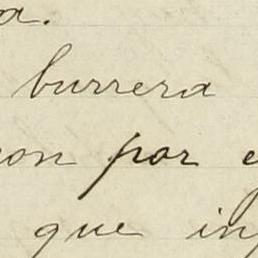 a.
burrera
on por e
que in